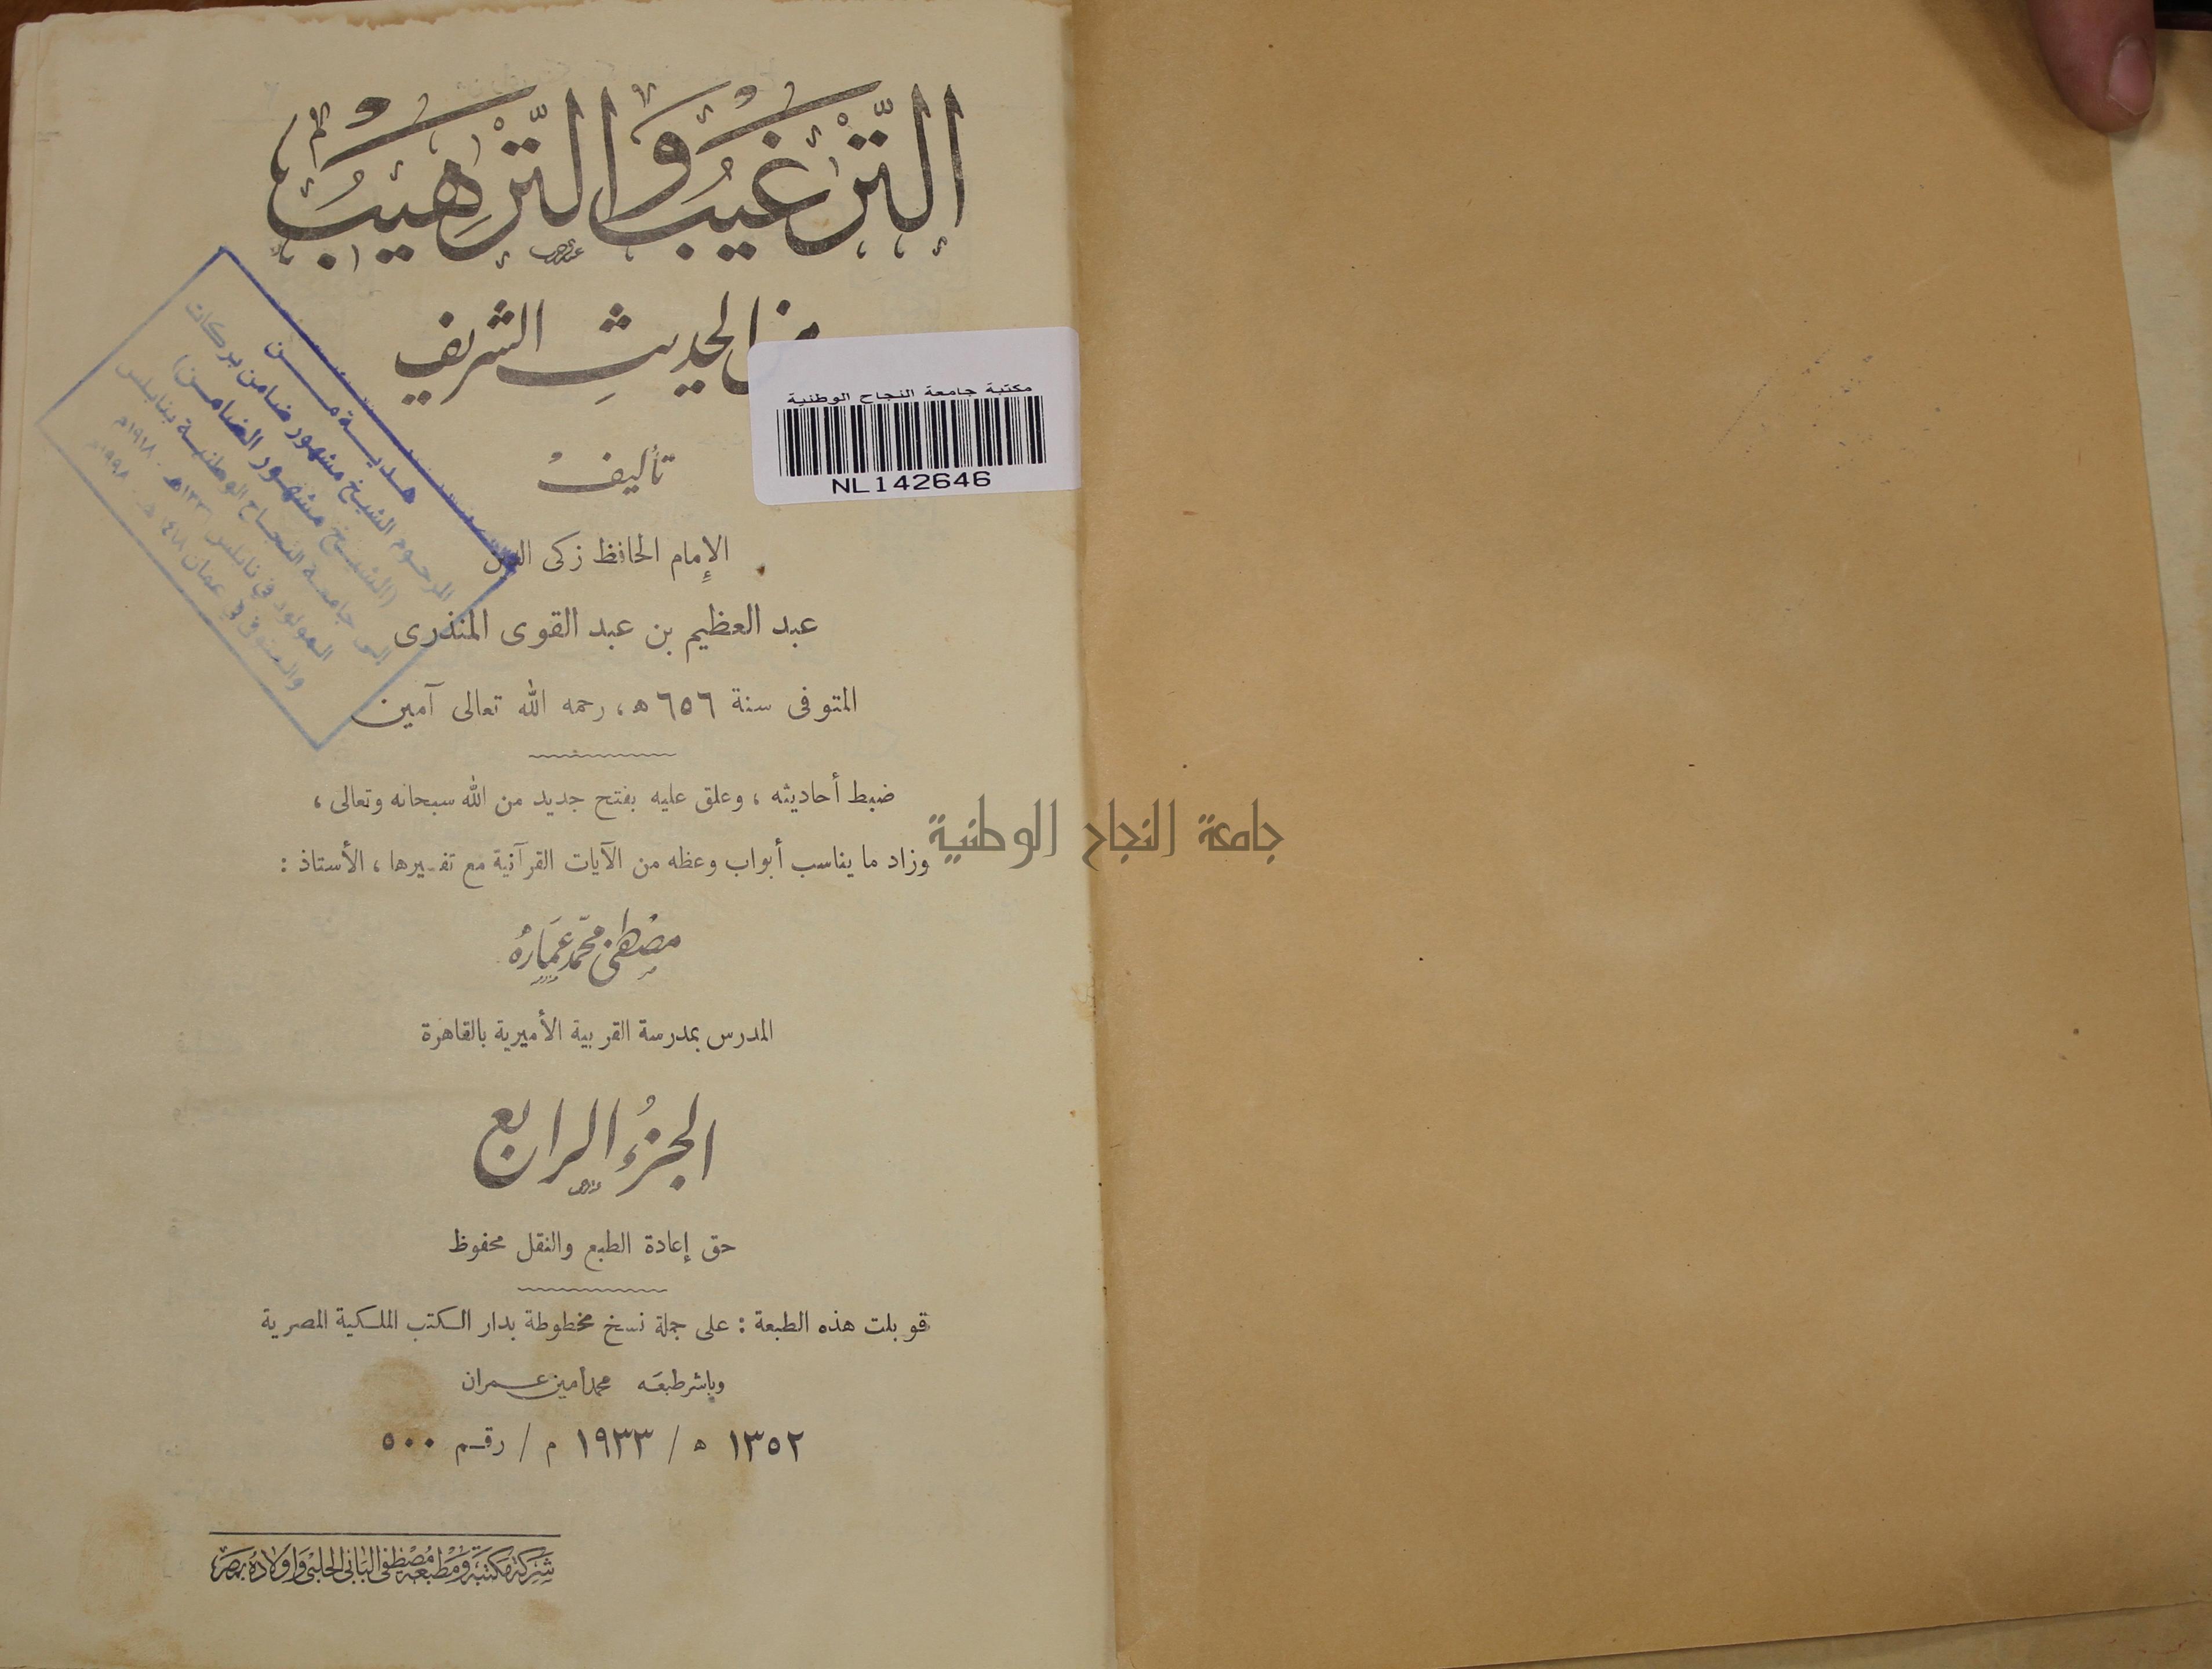 الترغيب والترهيب
من الحديث الشريف
مكتبة جامعة النجاح الوطنية
NL142646
تأليف
الإمام الحافظ زكى الدين
عبد العظيم بن عبد القوى المنذرى
المتوفى سنة ٦٥٦ ه، رحمه الله تعالى آمين
ضبط أحاديثه ، وعلق عليه بفتح جديد من الله سبحانه وتعالى ،
وزاد ما يناسب أبواب وعظه من الآيات القرآنية مع تفسيرها ، الأستاذ :
مصطفى محمد عماره
المدرس بمدرسة القربية الأميرية بالقاهرة
الجزء الرابع
حق إعادة الطبع والنقل محفوظ
قوبلت هذه الطبعة : على جملة نسخ مخطوطة بدار الكتب الملكية المصرية
وباشر طبعه محمد أمين عمران
١٣٥٢ ه / ١٩٣٣ م / رقم ٥٠٠
شركة مكتبة ومطبعة مصطفى البابى الحلبى وأولاده بمصر
هدية من
المرحوم الشيخ مشهور ضامن بركات
(الشيخ مشهور الضامن)
إلى جامعة النجاح الوطنية بنابلس
المولود في نابلس ه - ١٩١٨م
والمتوفى في عمان ١٤١٨ ه - ١٩٩٨م
جامعة النجاح الوطنية